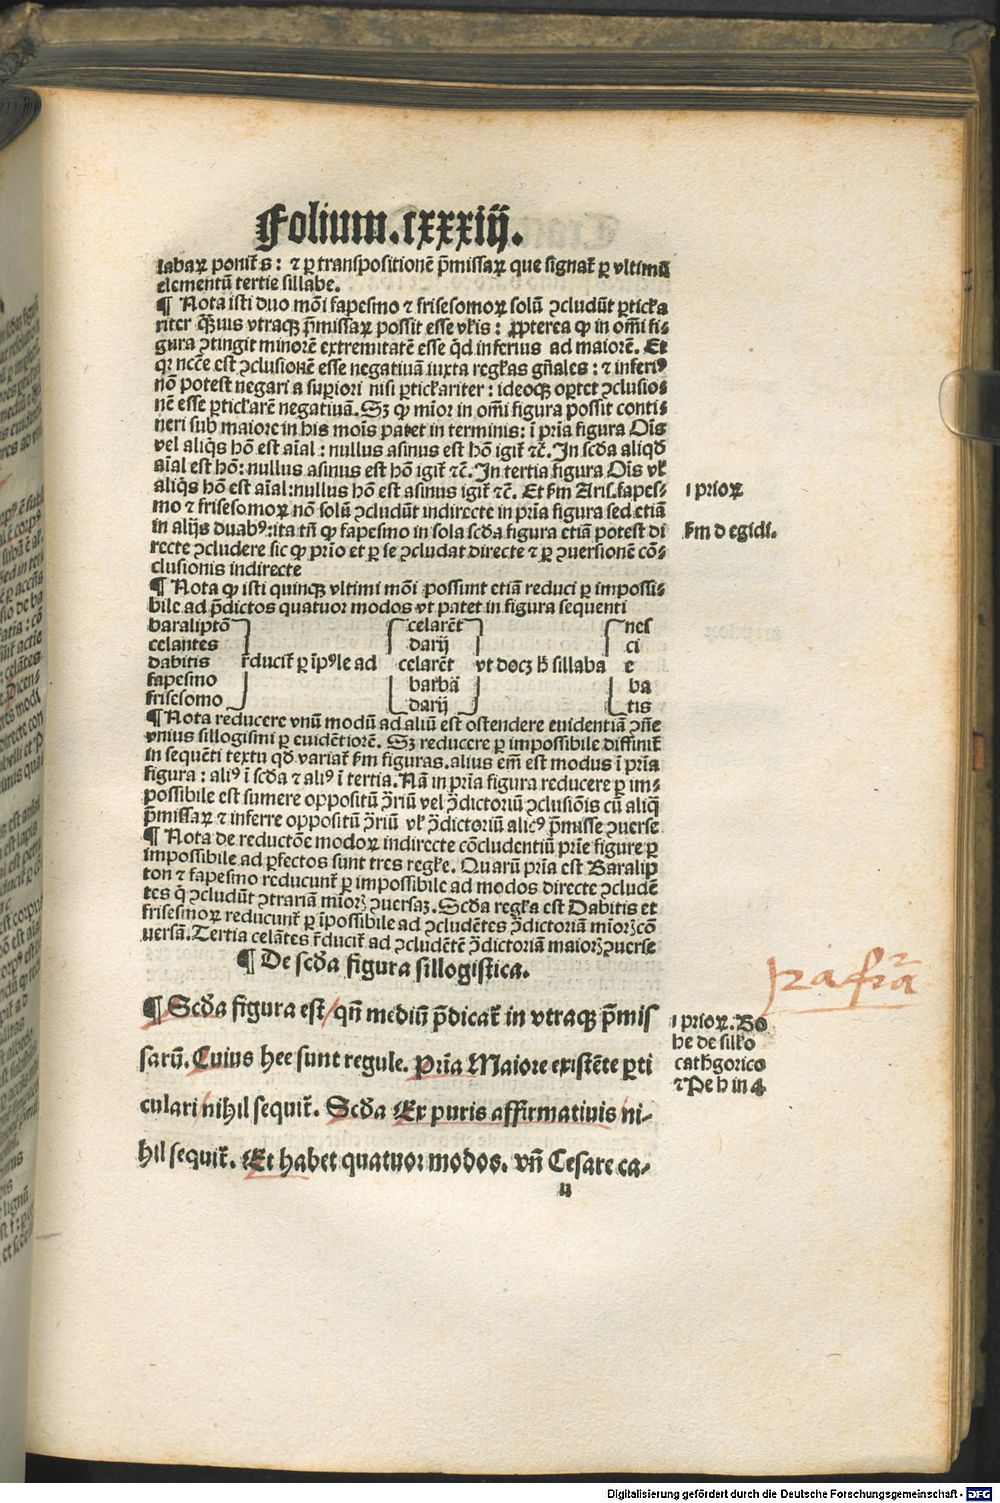 Folium.cxxxiij.
labaꝝ ponit᷑ s: ⁊ ꝑ transpositionē p̄missaꝝ que signat᷑ ꝑ vltimū
elementū tertie sillabe.
¶ Nota isti duo mōi fapesmo ⁊ frisesomoꝝ solū ꝯcludūt ꝑticľa
riter q̄uis vtraqꝫ p̄missaꝝ possit esse vľis: ꝓpterea ꝙ in om̄i fi-
gura ꝯtingit minorē extremitatē esse qd̄ inferius ad maiorē. Et
qꝛ nccē̄ est ꝯclusionē esse negatiuā iuxta regľas gn̄ales: ⁊ inferiꝰ
nō potest negari a suꝑiori nisi ꝑticľariter: ideoqꝫ oꝑtet ꝯclusio-
nē esse ꝑticľarē negatiuā. Sꝫ ꝙ mīor in om̄i figura possit conti-
neri sub maiore in his moīs patet in terminis: ī pr̄ia figura Oīs
vel aliqͥs hō est aīal: nullus asinus est hō igit᷑ ⁊c̄. In scďa aliqd̄
aīal est hō: nullus asinus est hō igit᷑ ⁊c̄. In tertia figura Oīs vľ
aliqͥs hō est aīal: nullus hō est asinus igit᷑ ⁊c̄. Et ẜm Aris. fapes-
mo ⁊ frisesomoꝝ nō solū ꝯcludūt indirecte in pr̄ia figura sed etiā
in alijs duabꝰ: ita tn̄ ꝙ fapesmo in sola scďa figura etiā potest di
recte ꝯcludere sic ꝙ prīo et ꝑ se ꝯcludat directe ⁊ ꝑ ꝯuersionē cō-
clusionis indirecte
¶ Nota ꝙ isti quinqꝫ vltimi mōi possunt etiā reduci ꝑ impossi-
bile ad p̄dictos quatuor modos vt patet in figura sequenti
baraliptō celarēt nes
celantes darij ci
dabitis r̄ducit᷑ ꝑ īpꝰle ad celarēt vt docꝫ ħ sillaba e
fapesmo barbā ba
frisesomo darij tis
¶ Nota reducere vnū modū ad aliū est ostendere euidentiā ꝯn̄e
vnius sillogismi ꝑ euidētiorē. Sꝫ reducere ꝑ impossibile diffinit᷑
in sequēti textu qď variat᷑ ẜm figuras. alius em̄ est modus ī pr̄ia
figura: aliꝰ ī scďa ⁊ aliꝰ ī tertia. Nā in pr̄ia figura reducere ꝑ im-
possibile est sumere oppositū ꝯ̄riū vel ꝯ̄dictoriū ꝯclusiōis cū aliq̄
p̄missaꝝ ⁊ inferre oppositū ꝯ̄riū vľ ꝯ̄dictoriū alicꝰ p̄misse ꝯuerse
¶ Nota de reductōe modoꝝ indirecte cōcludentiū prīe figure ꝑ
impossibile ad ꝑfectos sunt tres regľe. Quarū pr̄ia est Baralip
ton ⁊ fapesmo reducunt᷑ ꝑ impossibile ad modos directe ꝯcludē
tes q̄ ꝯcludūt ꝯtrariam mīorꝫ ꝯuersaꝫ. Scďa regľa est Dabitis et
frisesmoꝝ reducunt᷑ ꝑ īpossibile ad ꝯcludētes ꝯ̄dictoriā mīorꝫ cō
uersā. Tertia celātes r̄ducit᷑ ad ꝯcludētē ꝯ̄dictoriā maiorꝫ ꝯuerse
¶ De scďa figura sillogistica.
¶ Scďa figura est/ qn̄ mediū p̄dicat᷑ in vtraqꝫ p̄mis
sarū. Cuius hee sunt regule. Pr̄ia Maiore existēte ꝑti
culari nihil sequit᷑. Scďa Ex puris affirmatiuis ni-
hil sequit᷑. Et habet quatuor modos. vn̄ Cesare ca-
ij
i prioꝝ
ẜm d egidi.
pͣ fͣ
i prioꝝ. Bo
he de sillo
cathgorico
⁊ Pe h in 4
Digitalisierung gefördert durch die Deutsche Forschungsgemeinschaft - DFG